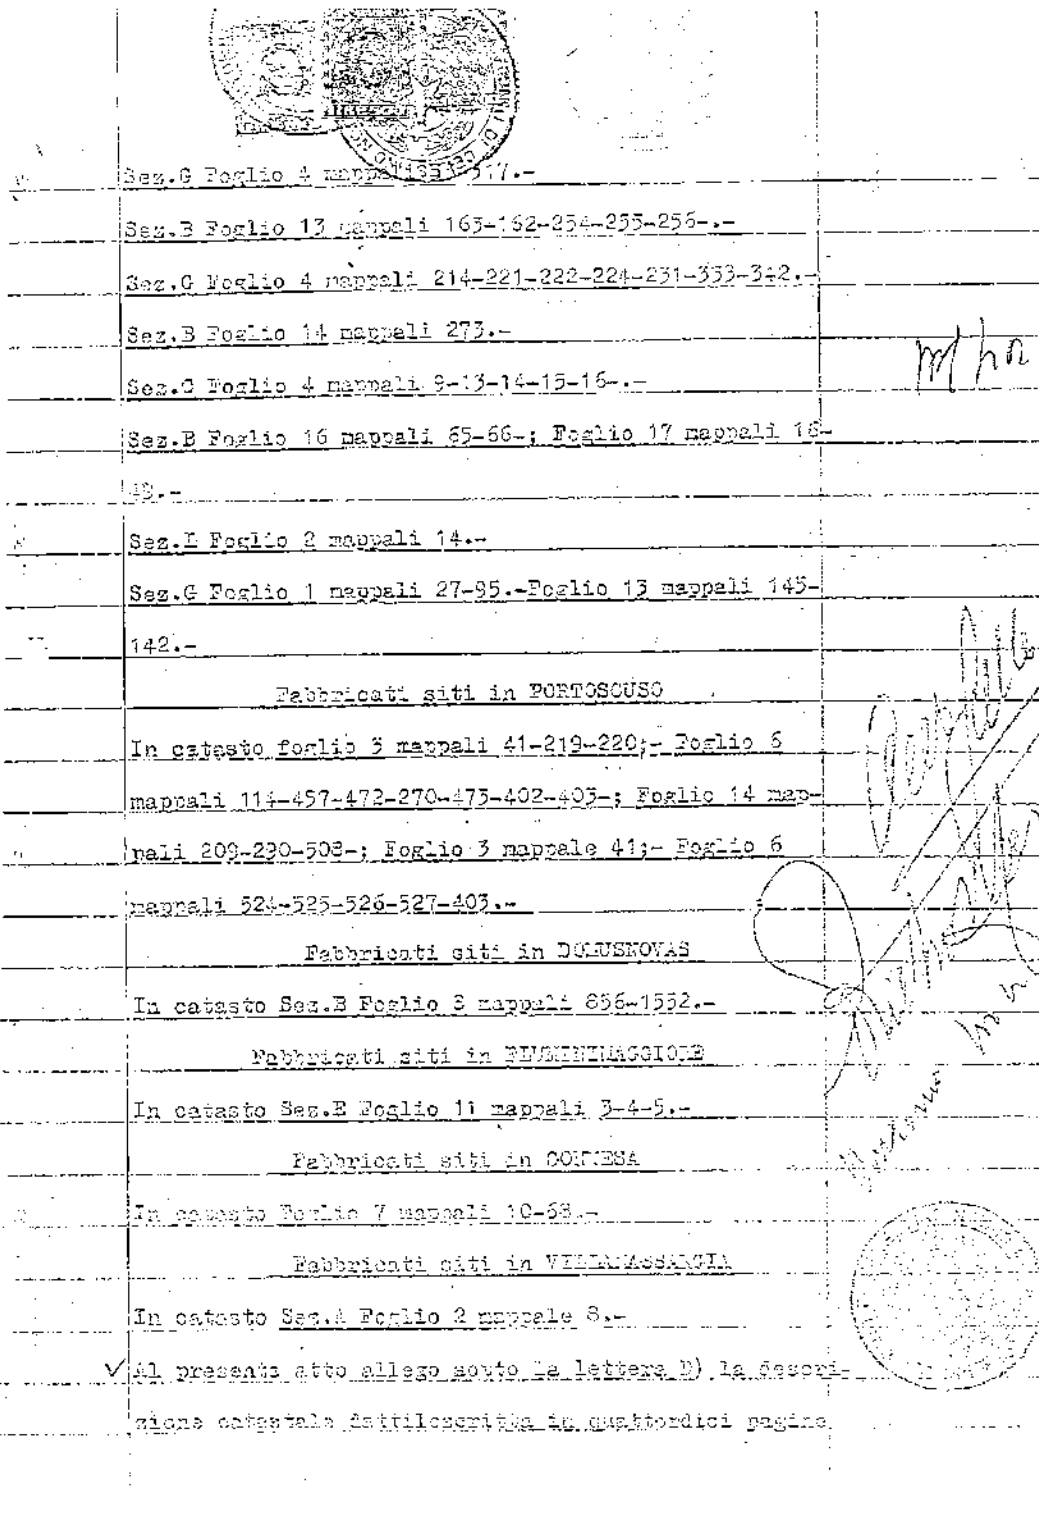 Sez.G Foglio 4 517.-
Sez.B Foglio 13 mappali 163-162-254-255-256-.-
Sez.G Foglio 4 mappali 214-221-222-224-231-333-342.-
Sez.B Foglio 14 mappali 273.-
Sez.G Foglio 4 mappali 9-13-14-15-16-.-
Sez.B Foglio 16 mappali 65-66-; Foglio 17 mappali 18-
Sez.L Foglio 2 mappali 14.-
Sez.G Foglio 1 mappali 27-95.-Foglio 13 mappali 143-
142.-
Fabbricati siti in PORTOSCUSO
In catasto foglio 3 mappali 41-219-220;- Foglio 6
mappali 114-457-472-270-473-402-403-; Foglio 14 map-
pali 209-290-508-; Foglio 3 mappale 41;- Foglio 6
mappali 524-525-526-527-403.-
Fabbricati siti in DOMUSNOVAS
In catasto Sez.B Foglio 8 mappali 856-1552.-
Fabbricati siti in FLUMINIMAGGIORE
In catasto Sez.E Foglio 11 mappali 3-4-5.-
Fabbricati siti in GONNESA
In catasto Foglio 7 mappali 10-68.-
Fabbricati siti in VILLAMASSARGIA
In catasto Sez.A Foglio 2 mappale 8.-
Al presente atto allego sotto la lettera D) la descri-
zione catastale dattiloscritta in quattordici pagine